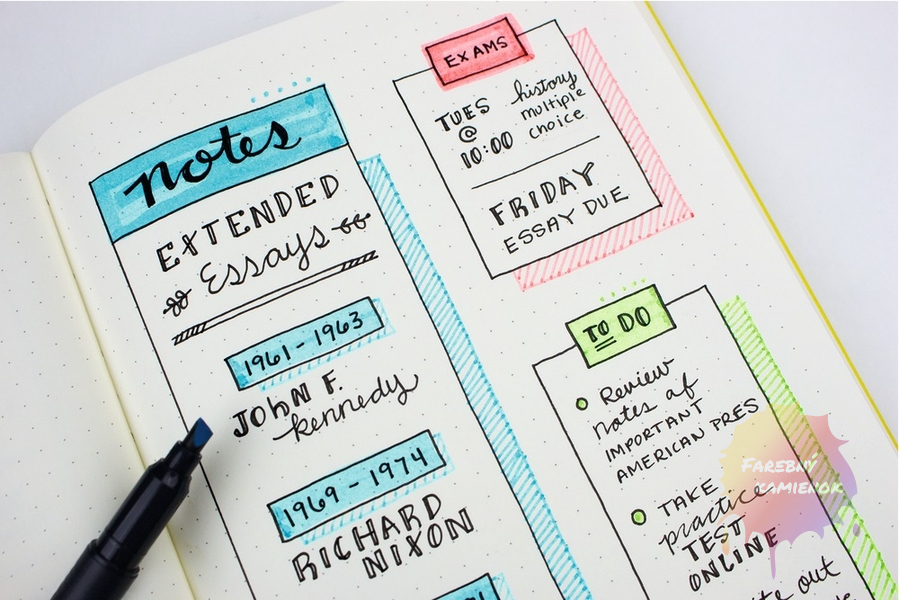 notes
EXTENDED
Essays
1961-1963
JOHN F.
kennedy
1969-1974
RICHARD
NIXON
EXAMS
TUES
@
10:00
history
multiple
choice
FRIDAY
ESSAY DUE
TO DO
Review
notes of
IMPORTANT
AMERICAN PRES
TAKE
practice
TEST
ONLINE
out
FAREBNÝ
KAMIENOK